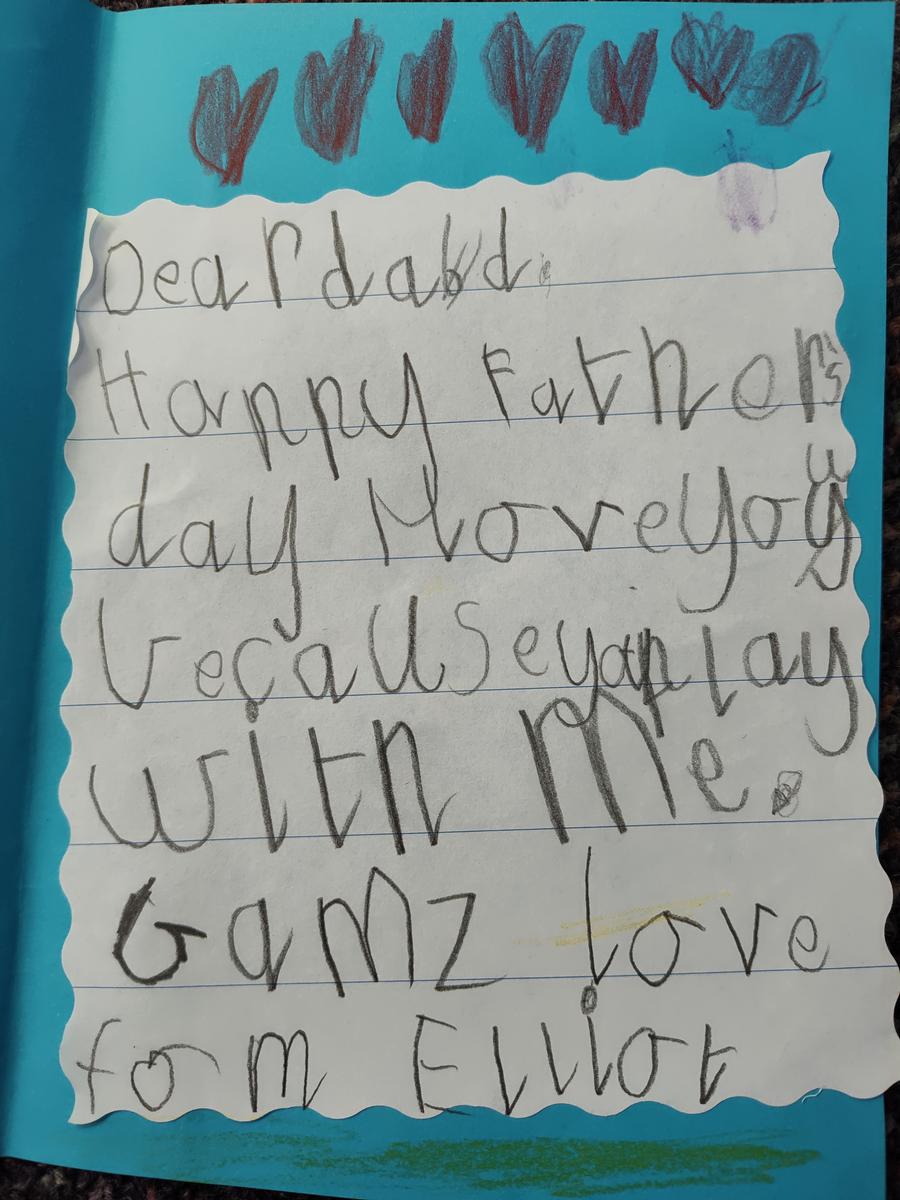 Dear dad.
Happy Father's
day I love you
because you play
with Me.
Gamz love
fom Elliot